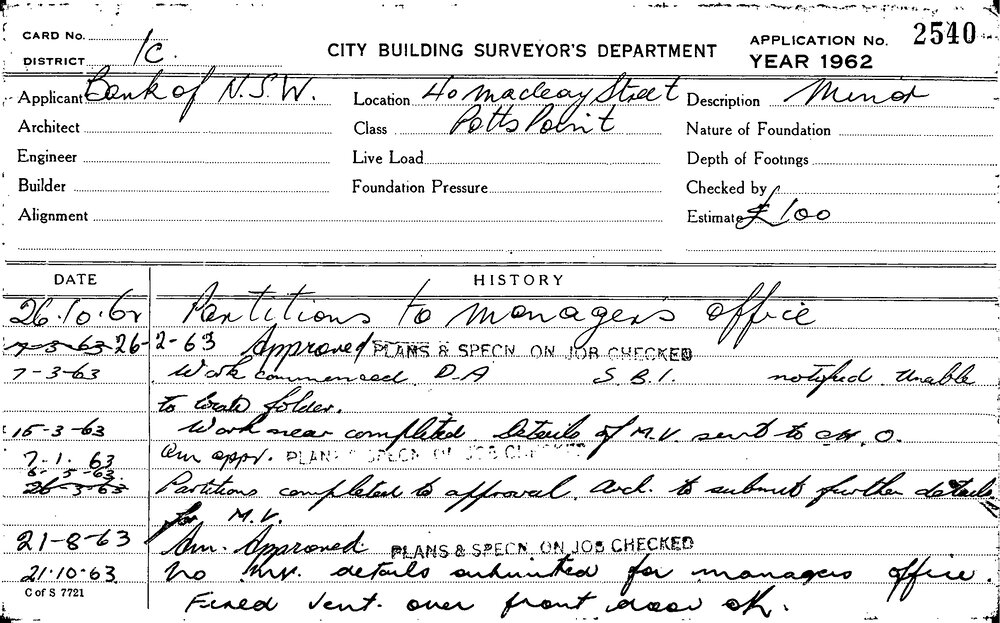 CARD No.
DISTRICT 1C.
CITY BUILDING SURVEYOR'S DEPARTMENT
APPLICATION No. 2540
YEAR 1962
Applicant Bank of N.S.W. Location 40 Macleay Street Description Minor
Architect Class Potts Point Nature of Foundation
Engineer Live Load Depth of Footings
Builder Foundation Pressure Checked by
Alignment Estimate £100
DATE HISTORY
26.10.62 Partitions to managers office
7-3-63 26-2-63 Approved PLANS & SPECN. ON JOB CHECKED
7-3-63 Work commenced D.A S.B.I. notified. Unable
to locate folder.
15-3-63 Work near completed. Details of M.V. sent to
7-1. 63 Am appr. PLANS & SPECN. ON JOB CHECKED
6-5-63
26-3-63 Partitions completed to approval. Arch. to submit further details
for M.V.
21-8-63 Am. Approved PLANS & SPECN. ON JOB CHECKED
21.10.63. No M.V. details submitted for managers office.
C of S 7721
Fixed Vent. over front door ok.